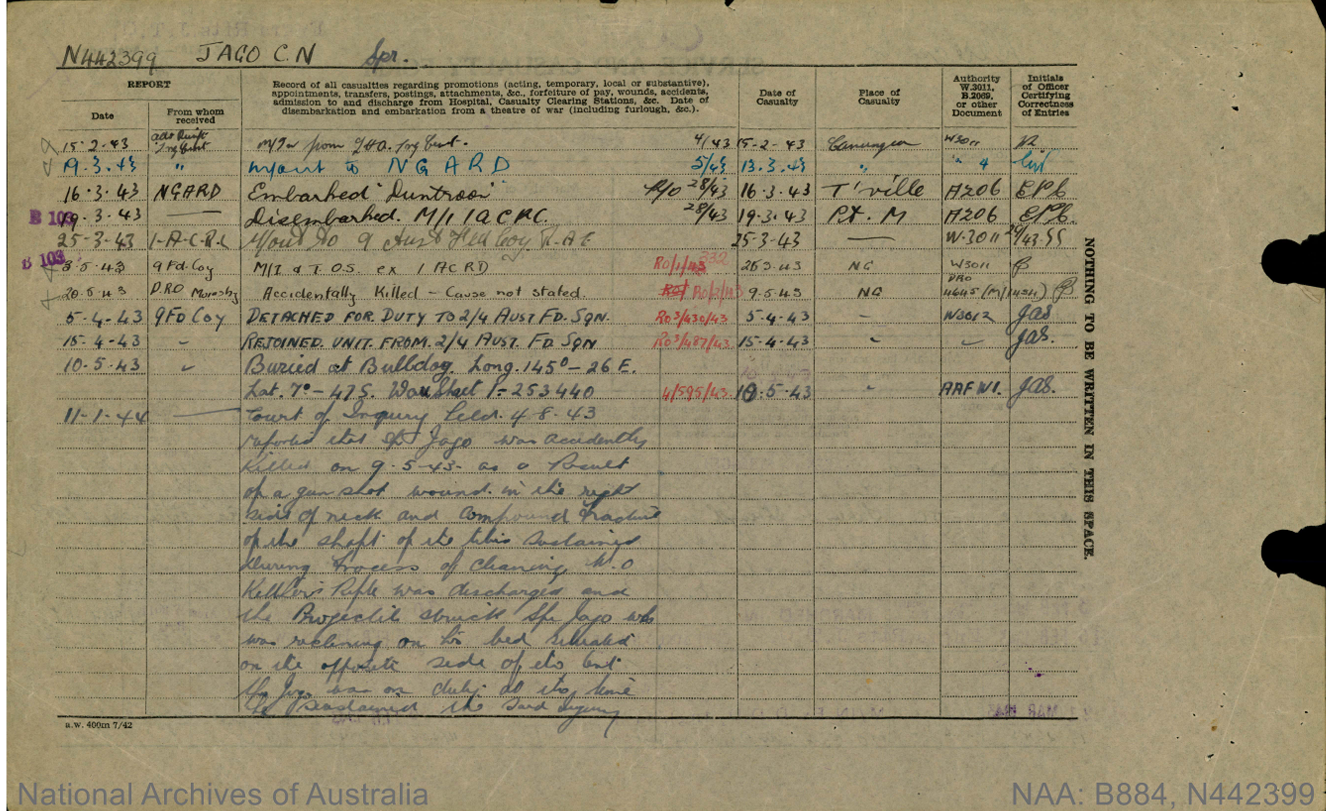 N442399 JAGO C.N Spr.
REPORT
Date
From whom received
Record of all casualties regarding promotions (acting, temporary, local or substantive), appointments, transfers, postings, attachments, &c., forfeiture of pay, wounds, accidents, admission to and discharge from Hospital, Casualty Clearing Stations, &c. Date of disembarkation and embarkation from a theatre of war (including furlough, &c.).
Date of Casualty
Place of Casualty
Authority W.3011, B.2069, or other Document
Initials of Officer Certifying Correctness of Entries
15-2-43 M/I from Trg Cent. 4/43 15-2-43 W3011
19.3.43 " M/out to NGARD 5/43 13.3.43 " " 4
16.3.43 NGARD Embarked "Duntroon" 28/43 16.3.43 T'ville A206 EPB
B 103
19.3.43 — Disembarked. M/I 1 A.C.R.C. 28/43 19.3.43 Pt. M A206 EPB
25-3-43 1-A-C-R- M/out to 9 Aust Fld Coy R.A.E 25-3-43 — W.3011
B 103
3.5.43 9 Fd. Coy M/I & T.O.S. ex 1 ACRD RO/1/43 332 26 3.43 NG W3011
20.5.43 DRO Moresby Accidentally Killed – Cause not stated. RO/ RO/2/43 9.5.43 NG DRO 4645
5-4-43 9 FD COY DETACHED FOR DUTY TO 2/4 AUST FD. SQN. RO3/430/43 5-4-43 - W3012 gas
15-4-43 " REJOINED UNIT FROM 2/4 AUST. FD SQN RO3/487/43 15-4-43 " " gas.
10-5-43 " Buried at Bulldog. Long. 145° – 26 E.
Lat. 7° – 47 S. Wau Sheet 1- 253440 4/595/43 10.5-43 " AAF W1. gas.
11-1-44 — Court of Inquiry held 4-8-43
reported that Spr Jago was accidently
Killed on 9-5-43- as a Result
of a gun shot wound in the right
side of neck and compound Fracture
of the shaft of the tibia sustained
during Process of cleaning N.O
Kettler's Rifle was discharged and
the Projectile struck Spr Jago who
was reclining on his bed situated
on the opposite side of the tent
Spr Jago was on duty at the time
he sustained the said injury
NOTHING TO BE WRITTEN IN THIS SPACE.
a.w. 400m 7/42
National Archives of Australia
NAA: B884, N442399